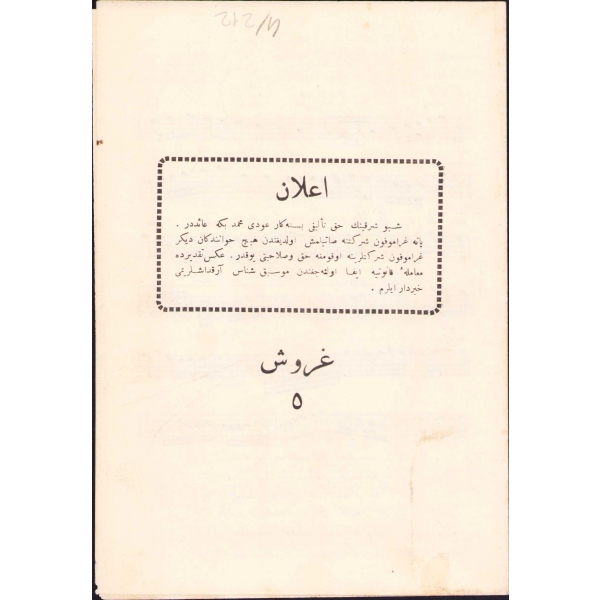 4/212
اعلان
شبو شرقینك حق تألیفی بسته‌كار عودی محمد بكه عائددر .
پاته غراموفون شركتنه صاتیلمش اولدیغندن هیچ خوانندكان دیكر
غراموفون شركتلرینه اوقومنه حق وصلاحیتی یوقدر . عكس تقدیرده
معاملهٔ قانونیه ایفا اوله‌جغندن موسیقی شناس آرقداشلریمی
خبردار ایلرم .
غروش
٥